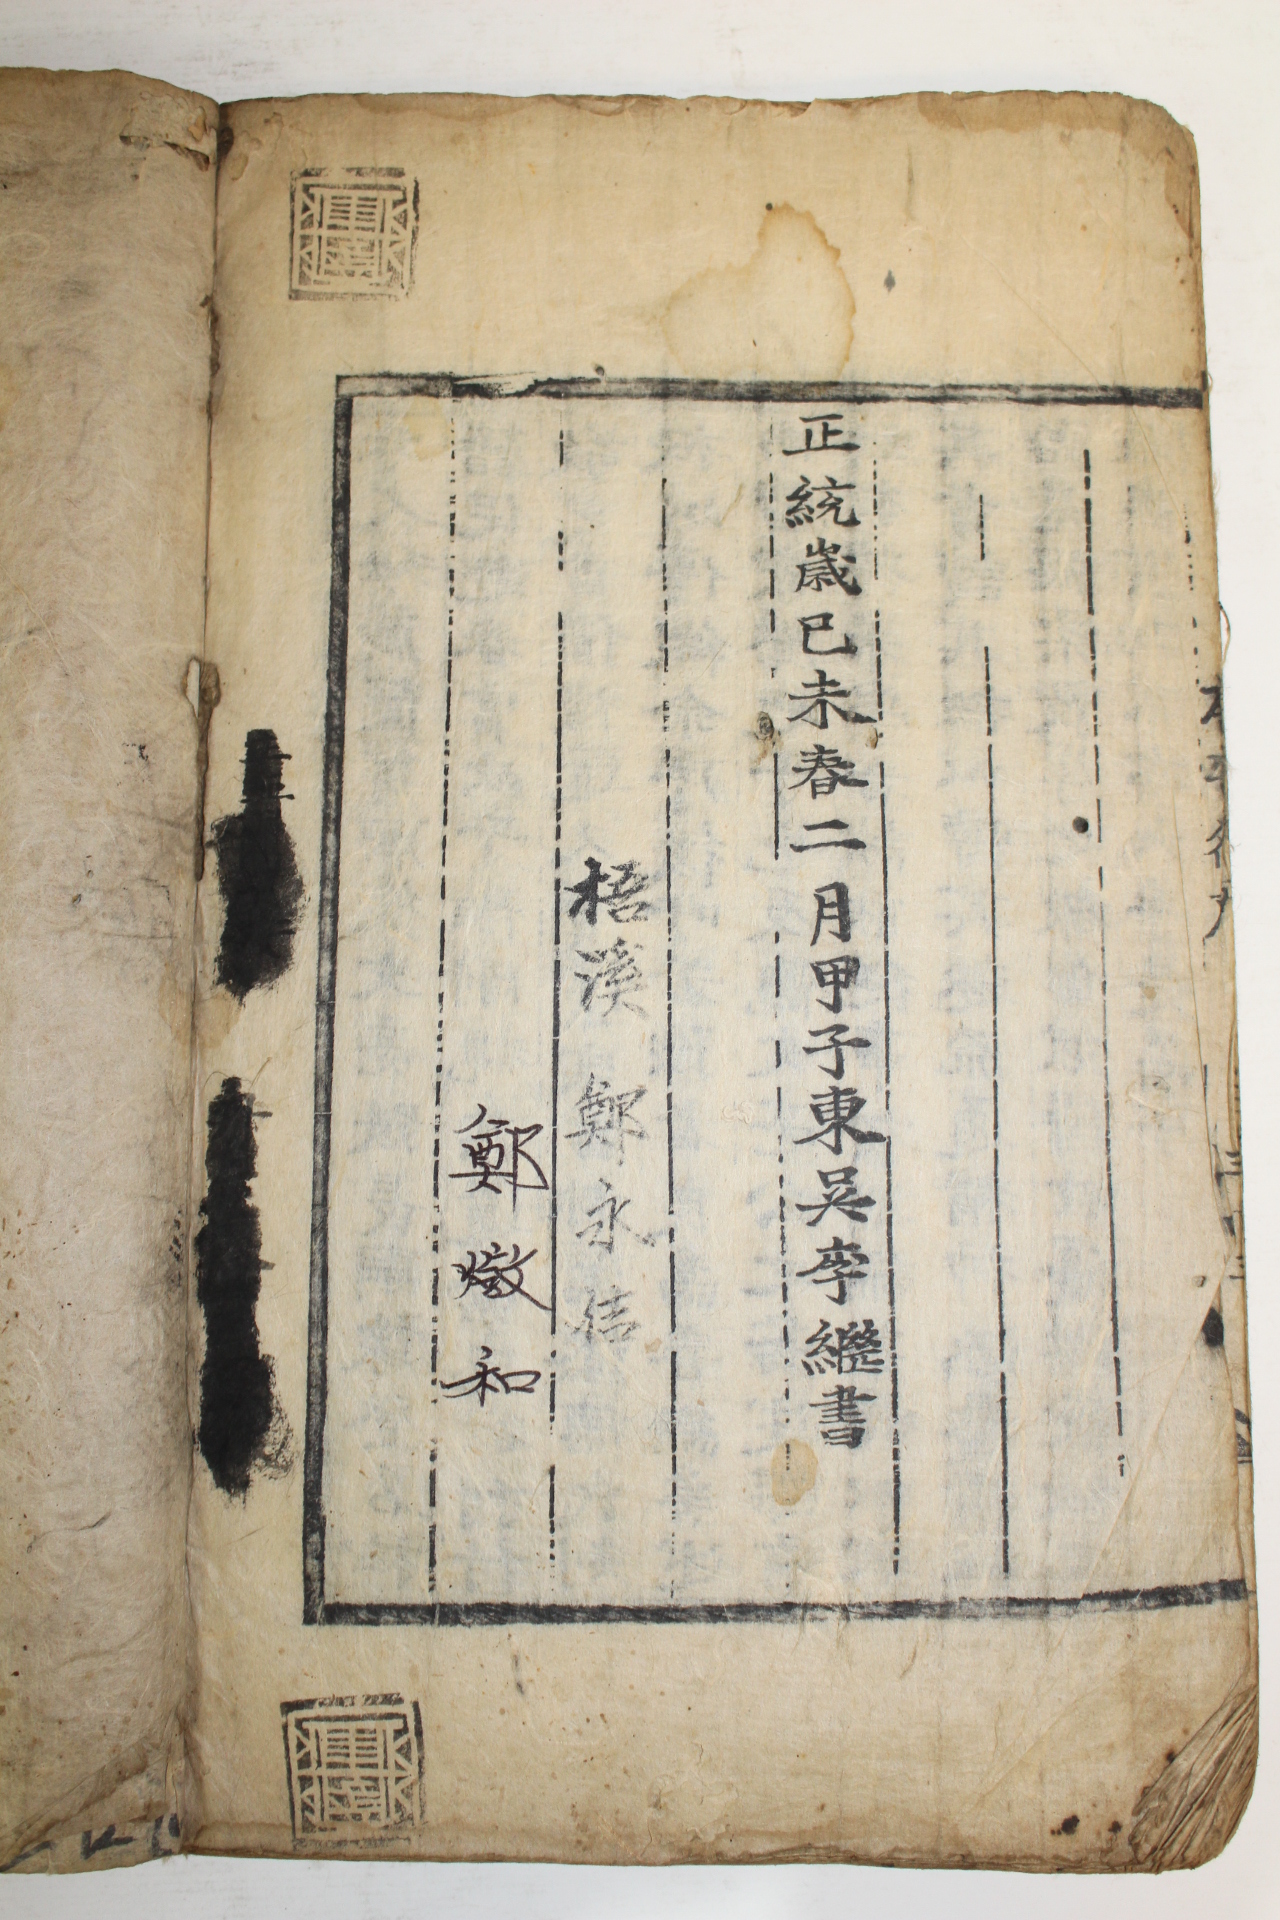 正統歲己未春二月甲子東吳李繼書
梧溪 鄭永信
鄭燉和